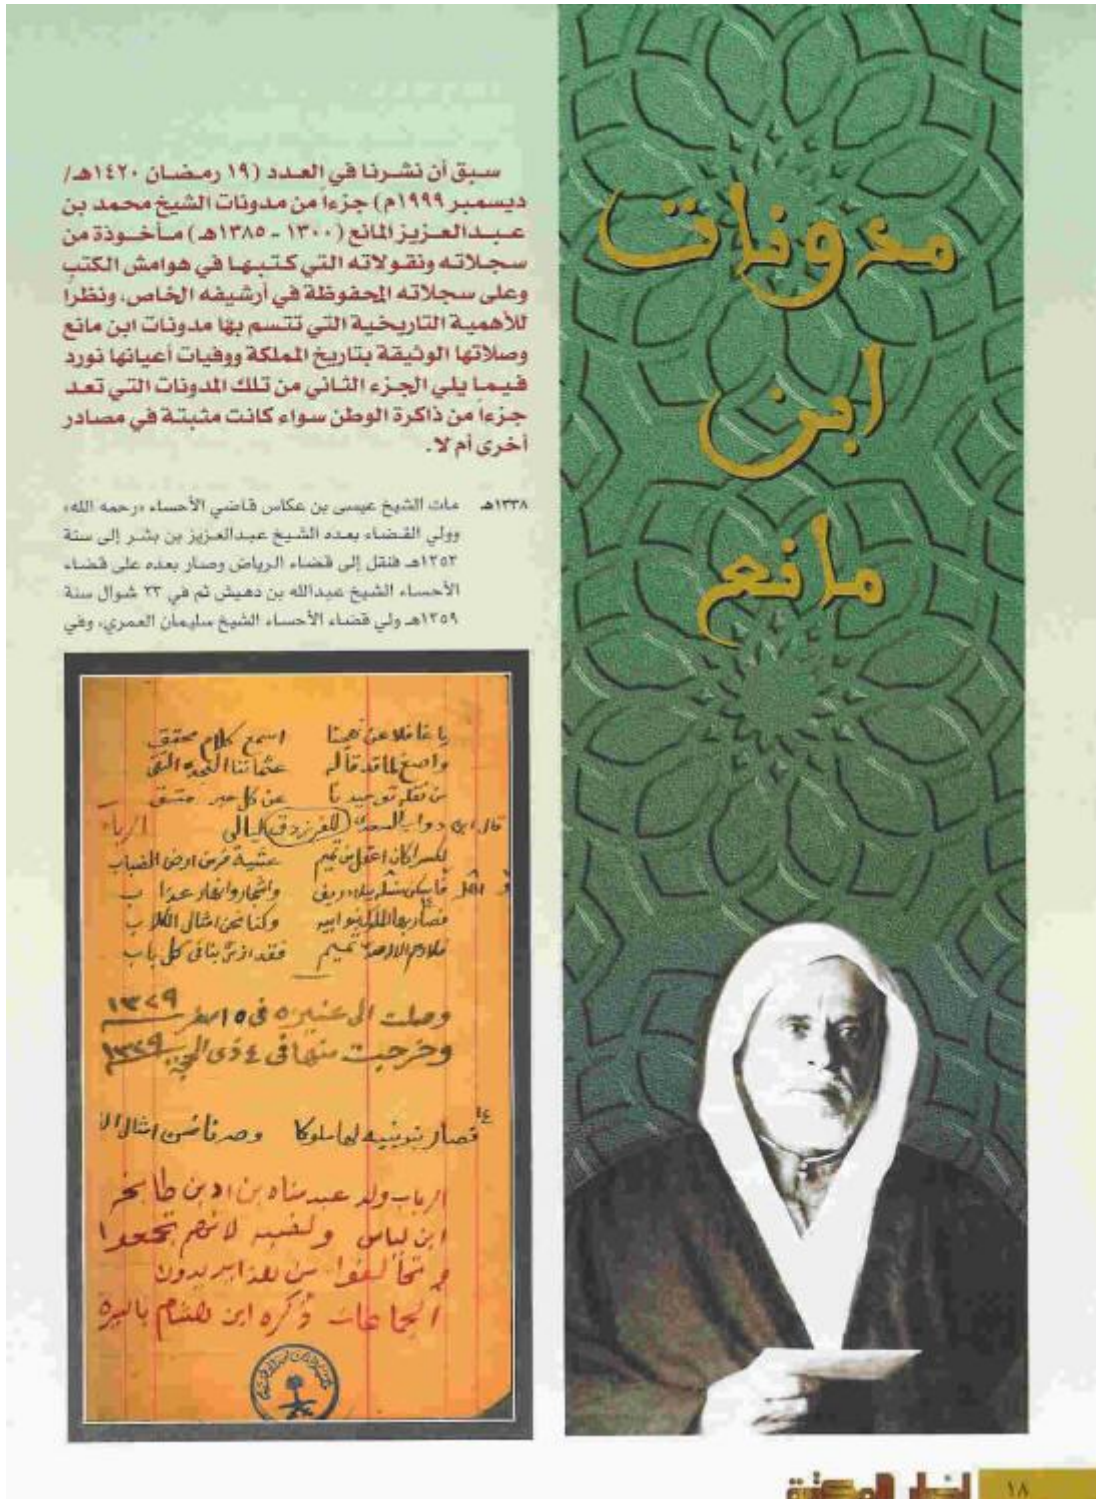 مدونات
ابن
مانع
سبق أن نشرنا في العدد (١٩ رمضان ١٤٢٠هـ/
ديسمبر ١٩٩٩م) جزءاً من مدونات الشيخ محمد بن
عبدالعزيز المانع (١٣٠٠ - ١٣٨٥هـ) مأخوذة من
سجلاته ونقولاته التي كتبها في هوامش الكتب
وعلى سجلاته المحفوظة في أرشيفه الخاص، ونظرا
للأهمية التاريخية التي تتسم بها مدونات ابن مانع
وصلاتها الوثيقة بتاريخ المملكة ووفيات أعيانها نورد
فيما يلي الجزء الثاني من تلك المدونات التي تعد
جزءاً من ذاكرة الوطن سواء كانت مثبتة في مصادر
أخرى أم لا.
١٣٣٨هـ مات الشيخ عيسى بن عكاس قاضي الأحساء «رحمه الله»
وولي القضاء بعده الشيخ عبدالعزيز بن بشر إلى سنة
١٣٥٣هـ فنقل إلى قضاء الرياض وصار بعده على قضاء
الأحساء الشيخ عبدالله بن دهيش ثم في ٢٣ شوال سنة
١٣٥٩هـ ولي قضاء الأحساء الشيخ سليمان العمري، وفي
يا غافلا عن نهجنا اسمع كلام محقق
واصغ لما قد قاله عثماننا النجدي التقي
عن كل حبر
قال ابن دواب السعدي للفرزدق
وكنا نحن امثال الكلاب
كل باب
وصلت الى عنيزه في ١٥ صفر ١٣٢٩
وخرجت منها في ٤ ذى الحجة ١٣٢٩
فصار بنو بنيه لها ملوكا وصرنا نحن امثال الا
الرباب ولد عبد مناه بن اد بن طابخر
ابن لياس ولقبه لانهم تجمعوا
وتحالفوا من بعد ابيهم يريدون
الجماعات ذكره ابن هشام بالسيرة
اخبار المكتبة
١٨